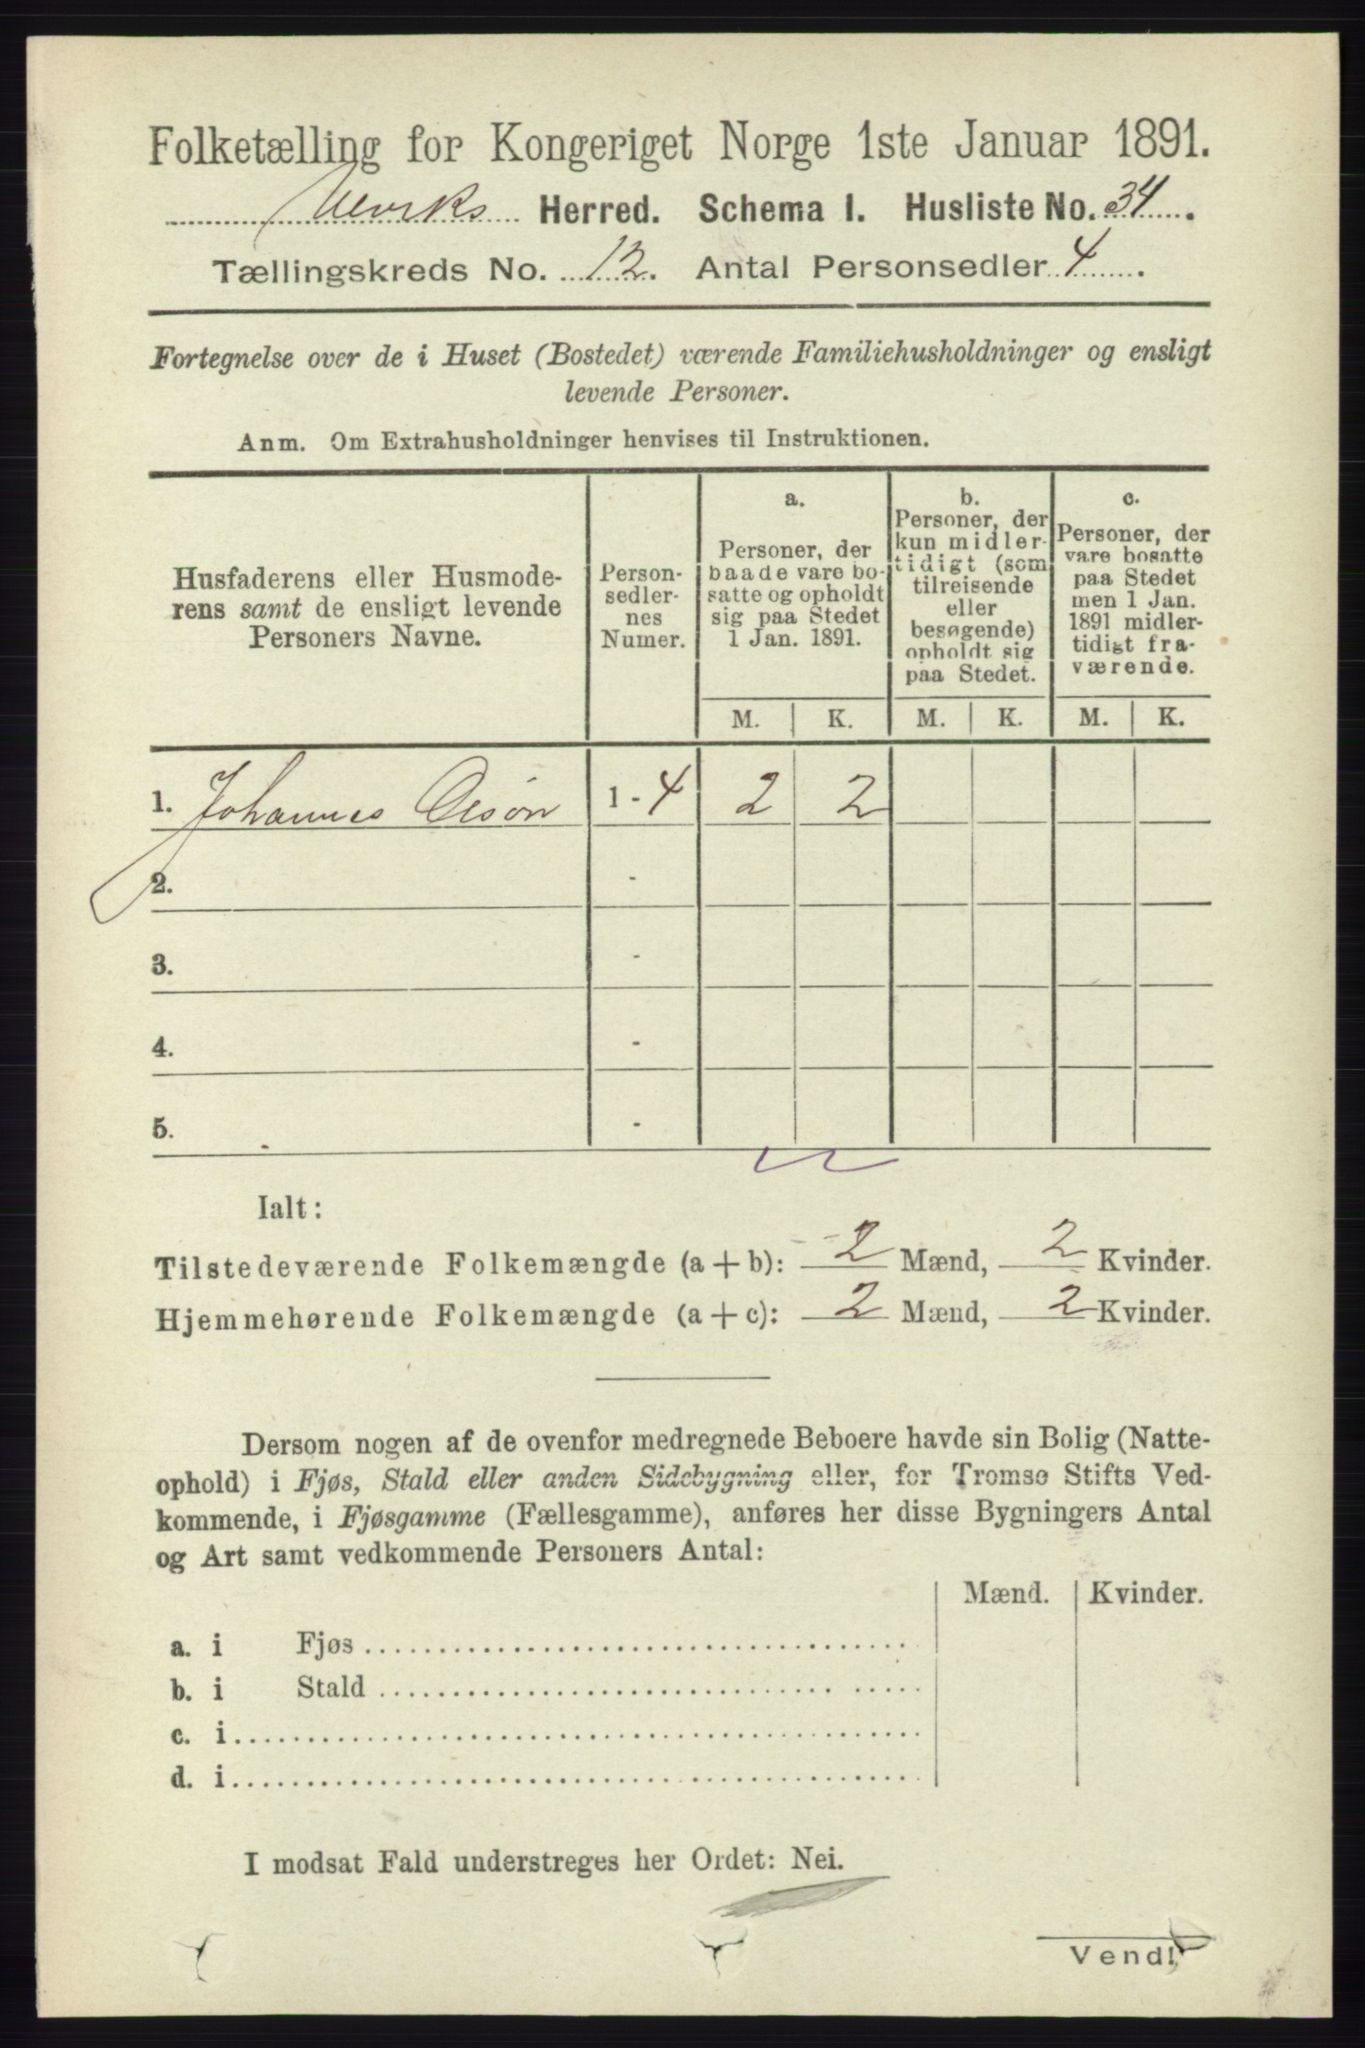 Folketælling for Kongeriget Norge 1ste Januar 1891.
Ulviks Herred. Schema I. Husliste No. 34.
Tællingskreds No. 12. Antal Personsedler 4.
Fortegnelse over de i Huset (Bostedet) værende Familiehusholdninger og ensligt
levende Personer.
Anm. Om Extrahusholdninger henvises til Instruktionen.
Husfaderens eller Husmode-
rens samt de ensligt levende
Personers Navne.
Person-
sedler-
nes
Numer.
a.
Personer, der
baade vare bo-
satte og opholdt
sig paa Stedet
1 Jan. 1891.
b.
Personer, der
kun midler-
tidigt (som
tilreisende
eller
besøgende)
opholdt sig
paa Stedet.
c.
Personer, der
vare bosatte
paa Stedet
men 1 Jan.
1891 midler-
tidigt fra-
værende.
M. K. M. K. M. K.
1. Johannes Olsøn 1 - 4 2 2
2. -
3. -
4. -
5. -
Ialt:
Tilstedeværende Folkemængde (a + b): 2 Mænd, 2 Kvinder.
Hjemmehørende Folkemængde (a + c): 2 Mænd, 2 Kvinder.
Dersom nogen af de ovenfor medregnede Beboere havde sin Bolig (Natte-
ophold) i Fjøs, Stald eller anden Sidebygning eller, for Tromsø Stifts Ved-
kommende, i Fjøsgamme (Fællesgamme), anføres her disse Bygningers Antal
og Art samt vedkommende Personers Antal:
Mænd. Kvinder.
a. i Fjøs
b. i Stald
c. i
d. i
I modsat Fald understreges her Ordet: Nei.
Vend!